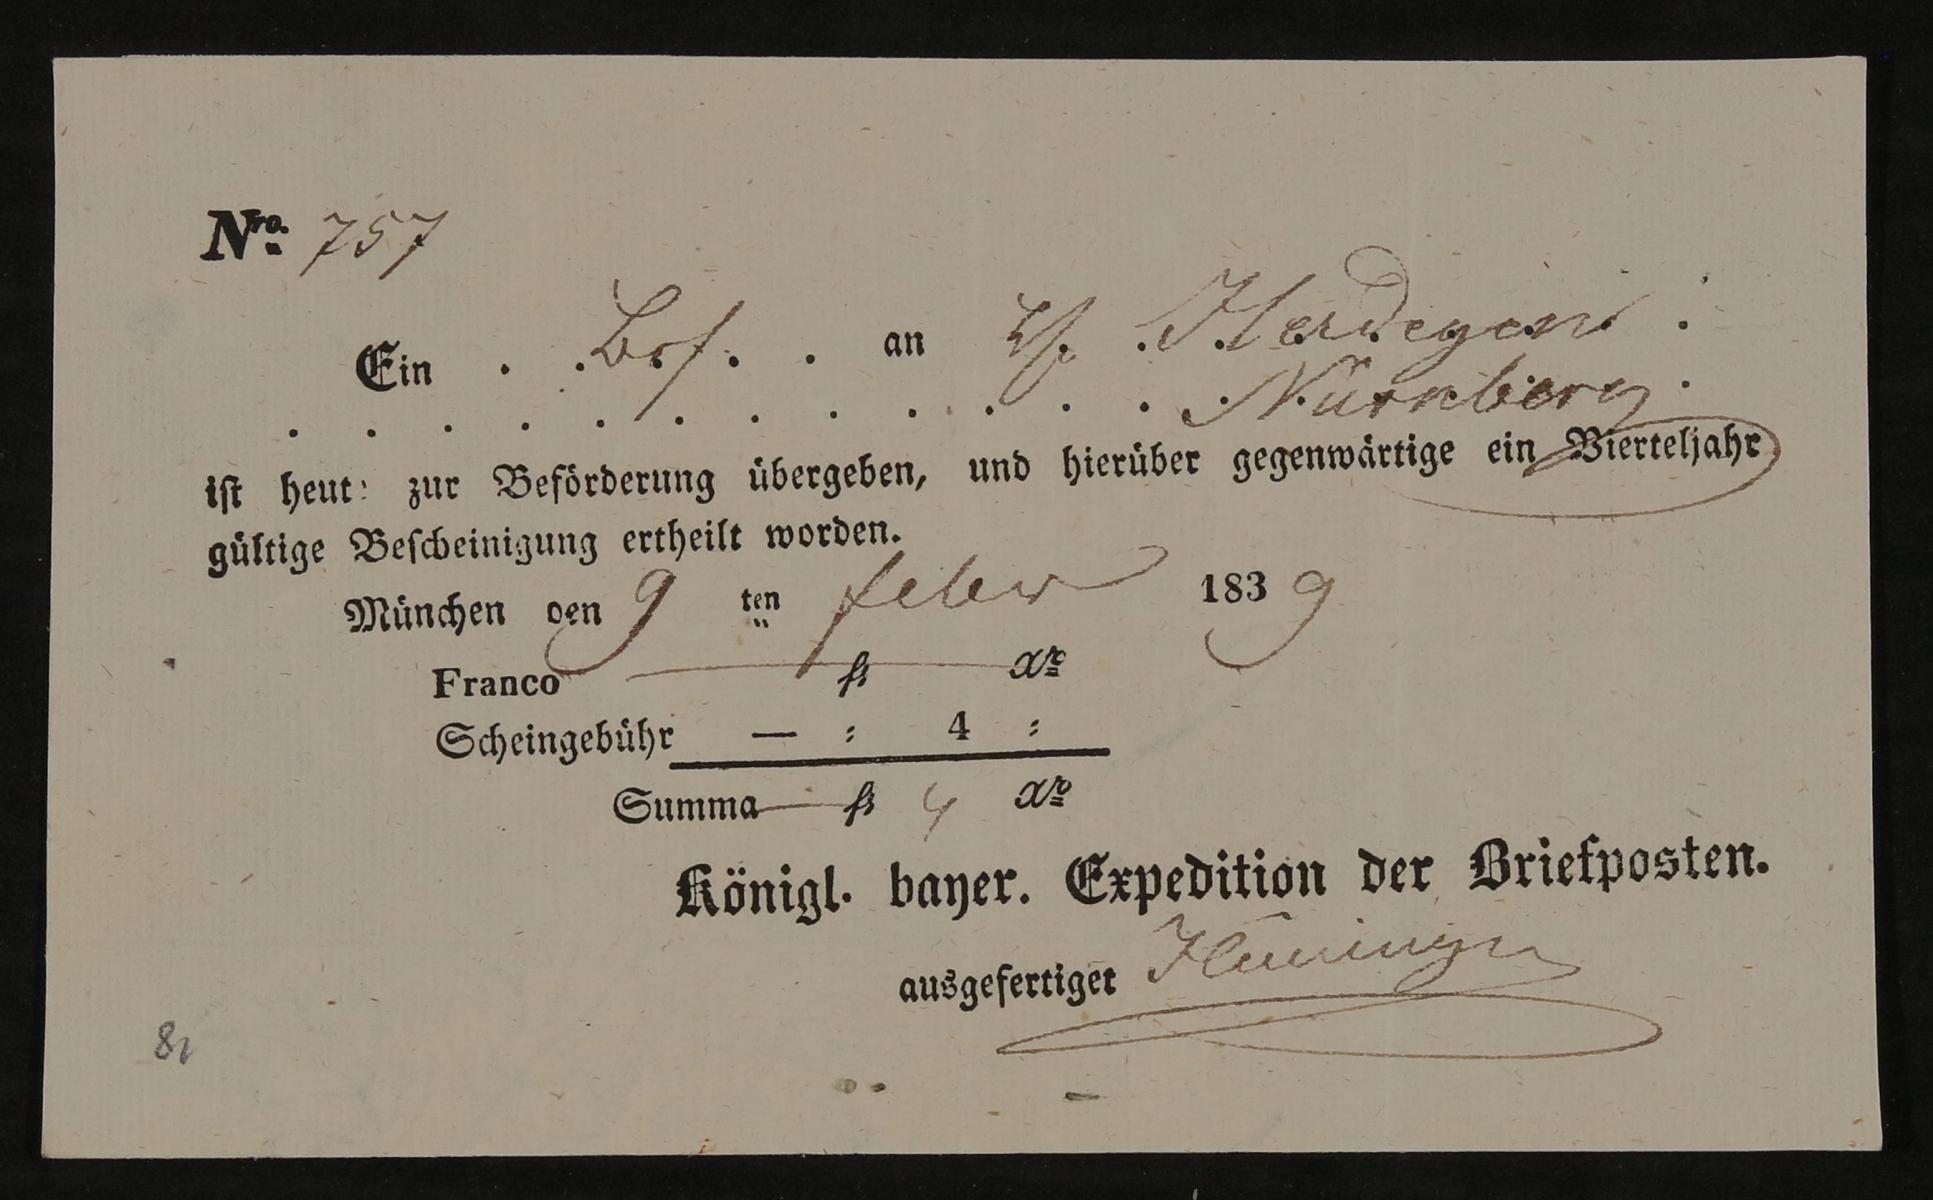 Nro. 757
Ein . . Brf. . an H. Herdegen .
Nürnberg
ist heut: zur Beförderung übergeben, und hierüber gegenwärtige ein Vierteljahr
gültige Bescheinigung ertheilt worden.
München den 9 ten Febr 1839
Franco — fl xr
Scheingebühr — : 4 :
Summa — fl 4 xr
Königl. bayer. Expedition der Briefposten.
ausgefertiget